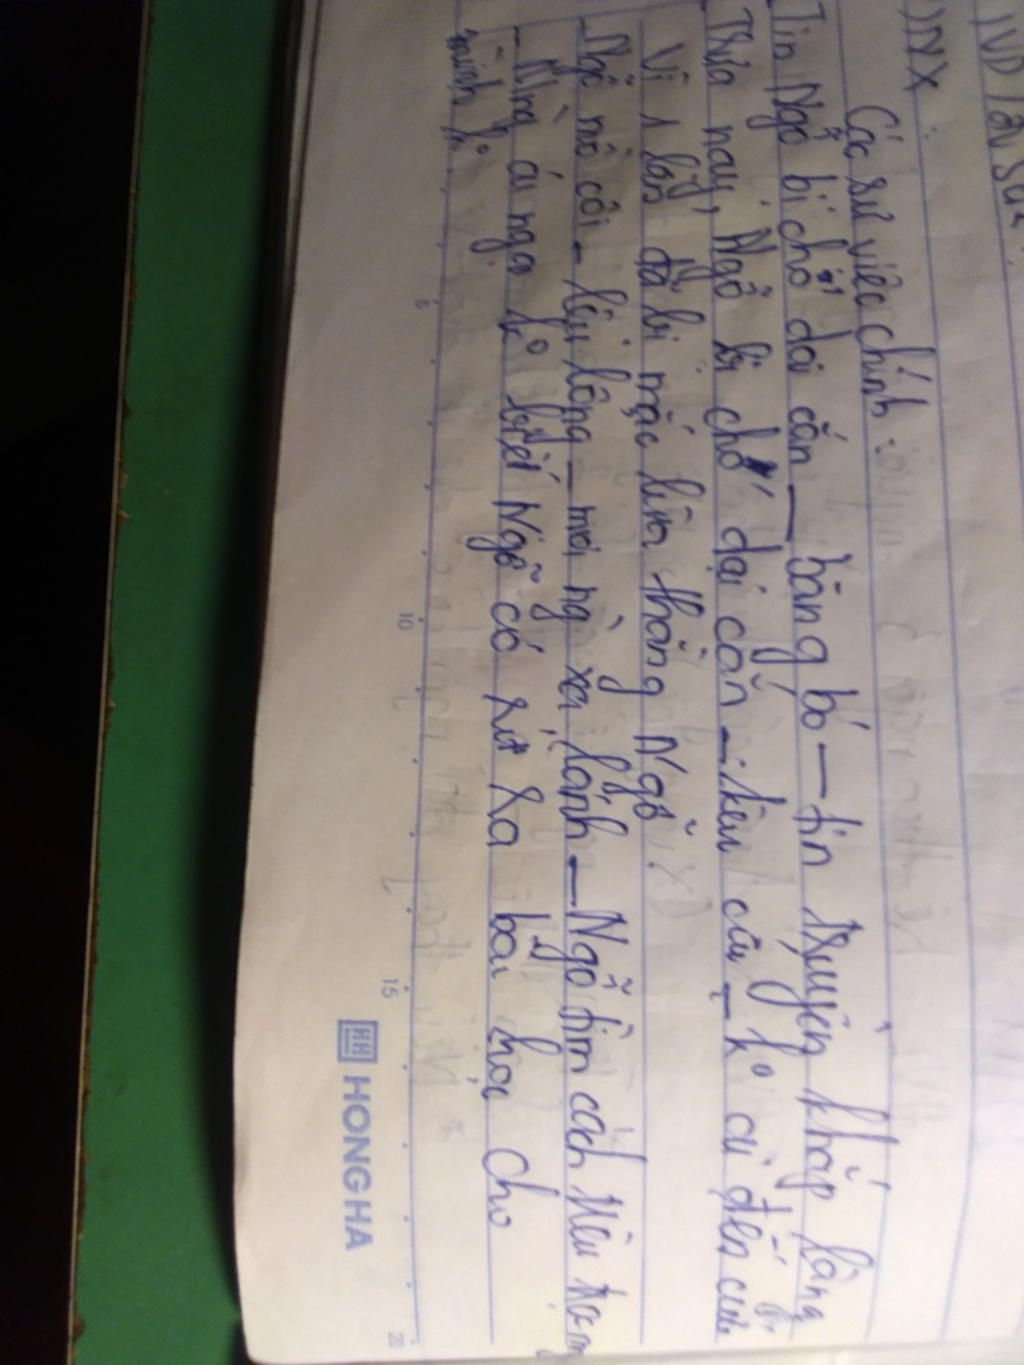 1) VD
) NX:
Các sự việc chính:
Tin Ngỗ bị chó dại cắn — băng bó — tin truyền khắp làng
Trưa nay, Ngỗ bị chó dại cắn — kêu cứu — k° ai đến cứu
Vì 1 lần đã bị mắc lừa thằng Ngỗ
- Ngỗ mồ côi - lêu lổng — mọi ng xa lánh — Ngỗ tìm cách trêu
- Nhg ai ngờ k° biết Ngỗ có rút ra bài học cho
mình k°
5
10
15
20
HH HONG HA